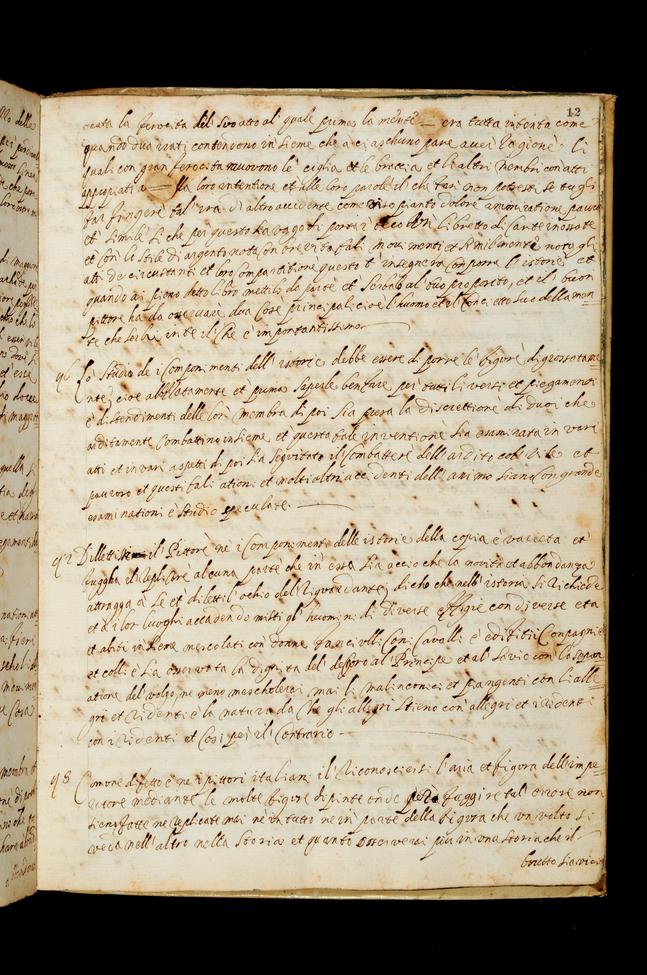 12
ceata la ferocita del suo atto al quale prima la mente era tutta intenta come
quando dua irati contendono insieme che a ciaschuno pare aver ragione li
quali con gran ferocita muovono le ciglia et le braccia et li altri membri con atti
appropriati alla loro intentione et alle loro parole il che far non potresti se tu gli
far fingere tal ira o altro accidente come riso pianto dolore ammiratione paura
et simile si che per questo sia vago di portar teco un libretto di carte inossate
et con lo stile di argento nota con brevita tali movimenti et similmente nota gli
atti de circustanti et loro compartitione questo t'insegnera comporre l'istorie et
quando ai pieno detto libro mettilo da parte et serbalo al tuo proposito, et il buon
pittore ha da osservare dua cose principali cioe l'huomo et il concietto suo della men=
te che serbai in te il che e importantissimo
96 Lo studio de i componimenti dell'istorie debbe essere di porre le figure digrossatame=
nte, cioe abbozzatamente et prima saperle ben fare per tutti li versi et piegamenti
e distendimenti delle lor membra di poi sia presa la discrettione di duoi che
arditamente combattino insieme, et questa tale inventione sia esaminata in vari
atti et in vari aspetti di poi sia seguitato il combattere dell'ardito col vile et
pauroso et questi tali ationi et molti altri accidenti dell'animo siano con grande
esaminationi e studio speculate.
97 Dilettisi il Pittore ne i componimenti delle istorie della copia e varieta et
fuggha il replicare alcuna parte che in essa sia accio che la novita et abbondanza
attragga a se et diletti l'ochio del riguardante, dicho che nell'istoria si richiede
et a i lor luoghi accadendo misti gl'huomini di diverse effigie con diverse eta
et abiti insieme mescolati con donne fanciulli Cani Cavalli e edifitii Campagnie
et colli e sia osservata la dignita del decoro al Principe et al savio con la separa=
atione del volgo, ne meno mescholerai mai li malinconici et piangenti con li alle=
gri et ridenti e la natura da che gli allegri stieno con allegri et i ridenti
con i ridenti et cosi per il contrario
98 Comune difetto e ne i pittori italiani il riconoscersi l'aria et figura dell'impe=
ratore mediante le molte figure dipinte onde per fuggire tal errore non
sieno fatte ne replicate mai ne in tutto ne in parte della figura che un volto si
veda nell'altro nella storia et quanto osserverai piu in una storia che il
brutto sia vicino